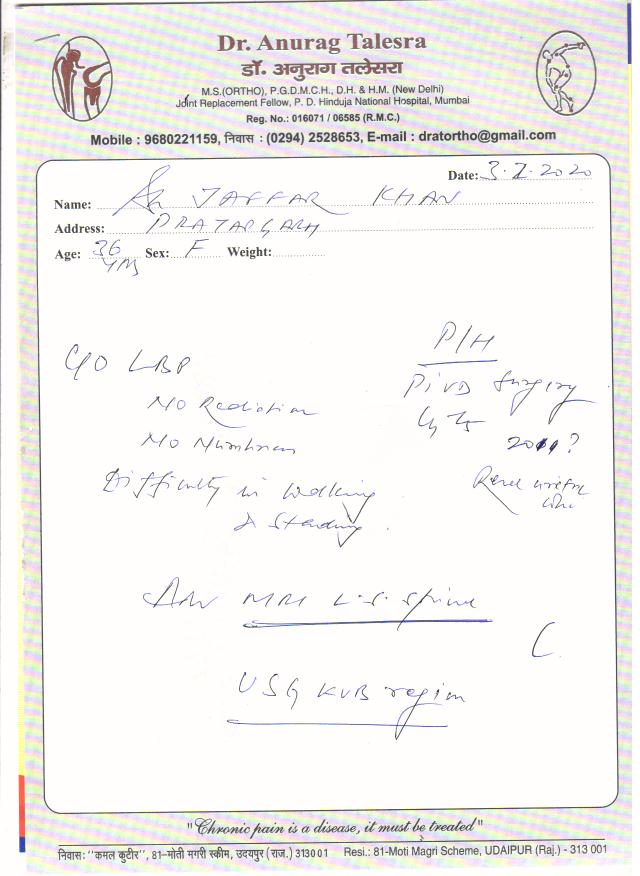 Dr. Anurag Talesra
डॉ. अनुराग तलेसरा
M.S.(ORTHO), P.G.D.M.C.H., D.H. & H.M. (New Delhi)
Joint Replacement Fellow, P. D. Hinduja National Hospital, Mumbai
Reg. No.: 016071 / 06585 (R.M.C.)
Mobile : 9680221159, निवास : (0294) 2528653, E-mail : dratortho@gmail.com
Date: 3.I.2020
Name: JAFFAR KHAN
Address: PRATAPGARH
Age: 36 yrs Sex: F Weight:
P/H
C/O LBP
PIVD Surgery
No Radiation
L4 L5
No Numbness
2011?
Difficulty in walking
& Standing.
Adv MRI L.S. Spine
USG KUB region
"Chronic pain is a disease, it must be treated"
निवास: "कमल कुटीर", 81-मोती मगरी स्कीम, उदयपुर (राज.) 313001 Resi.: 81-Moti Magri Scheme, UDAIPUR (Raj.) - 313 001